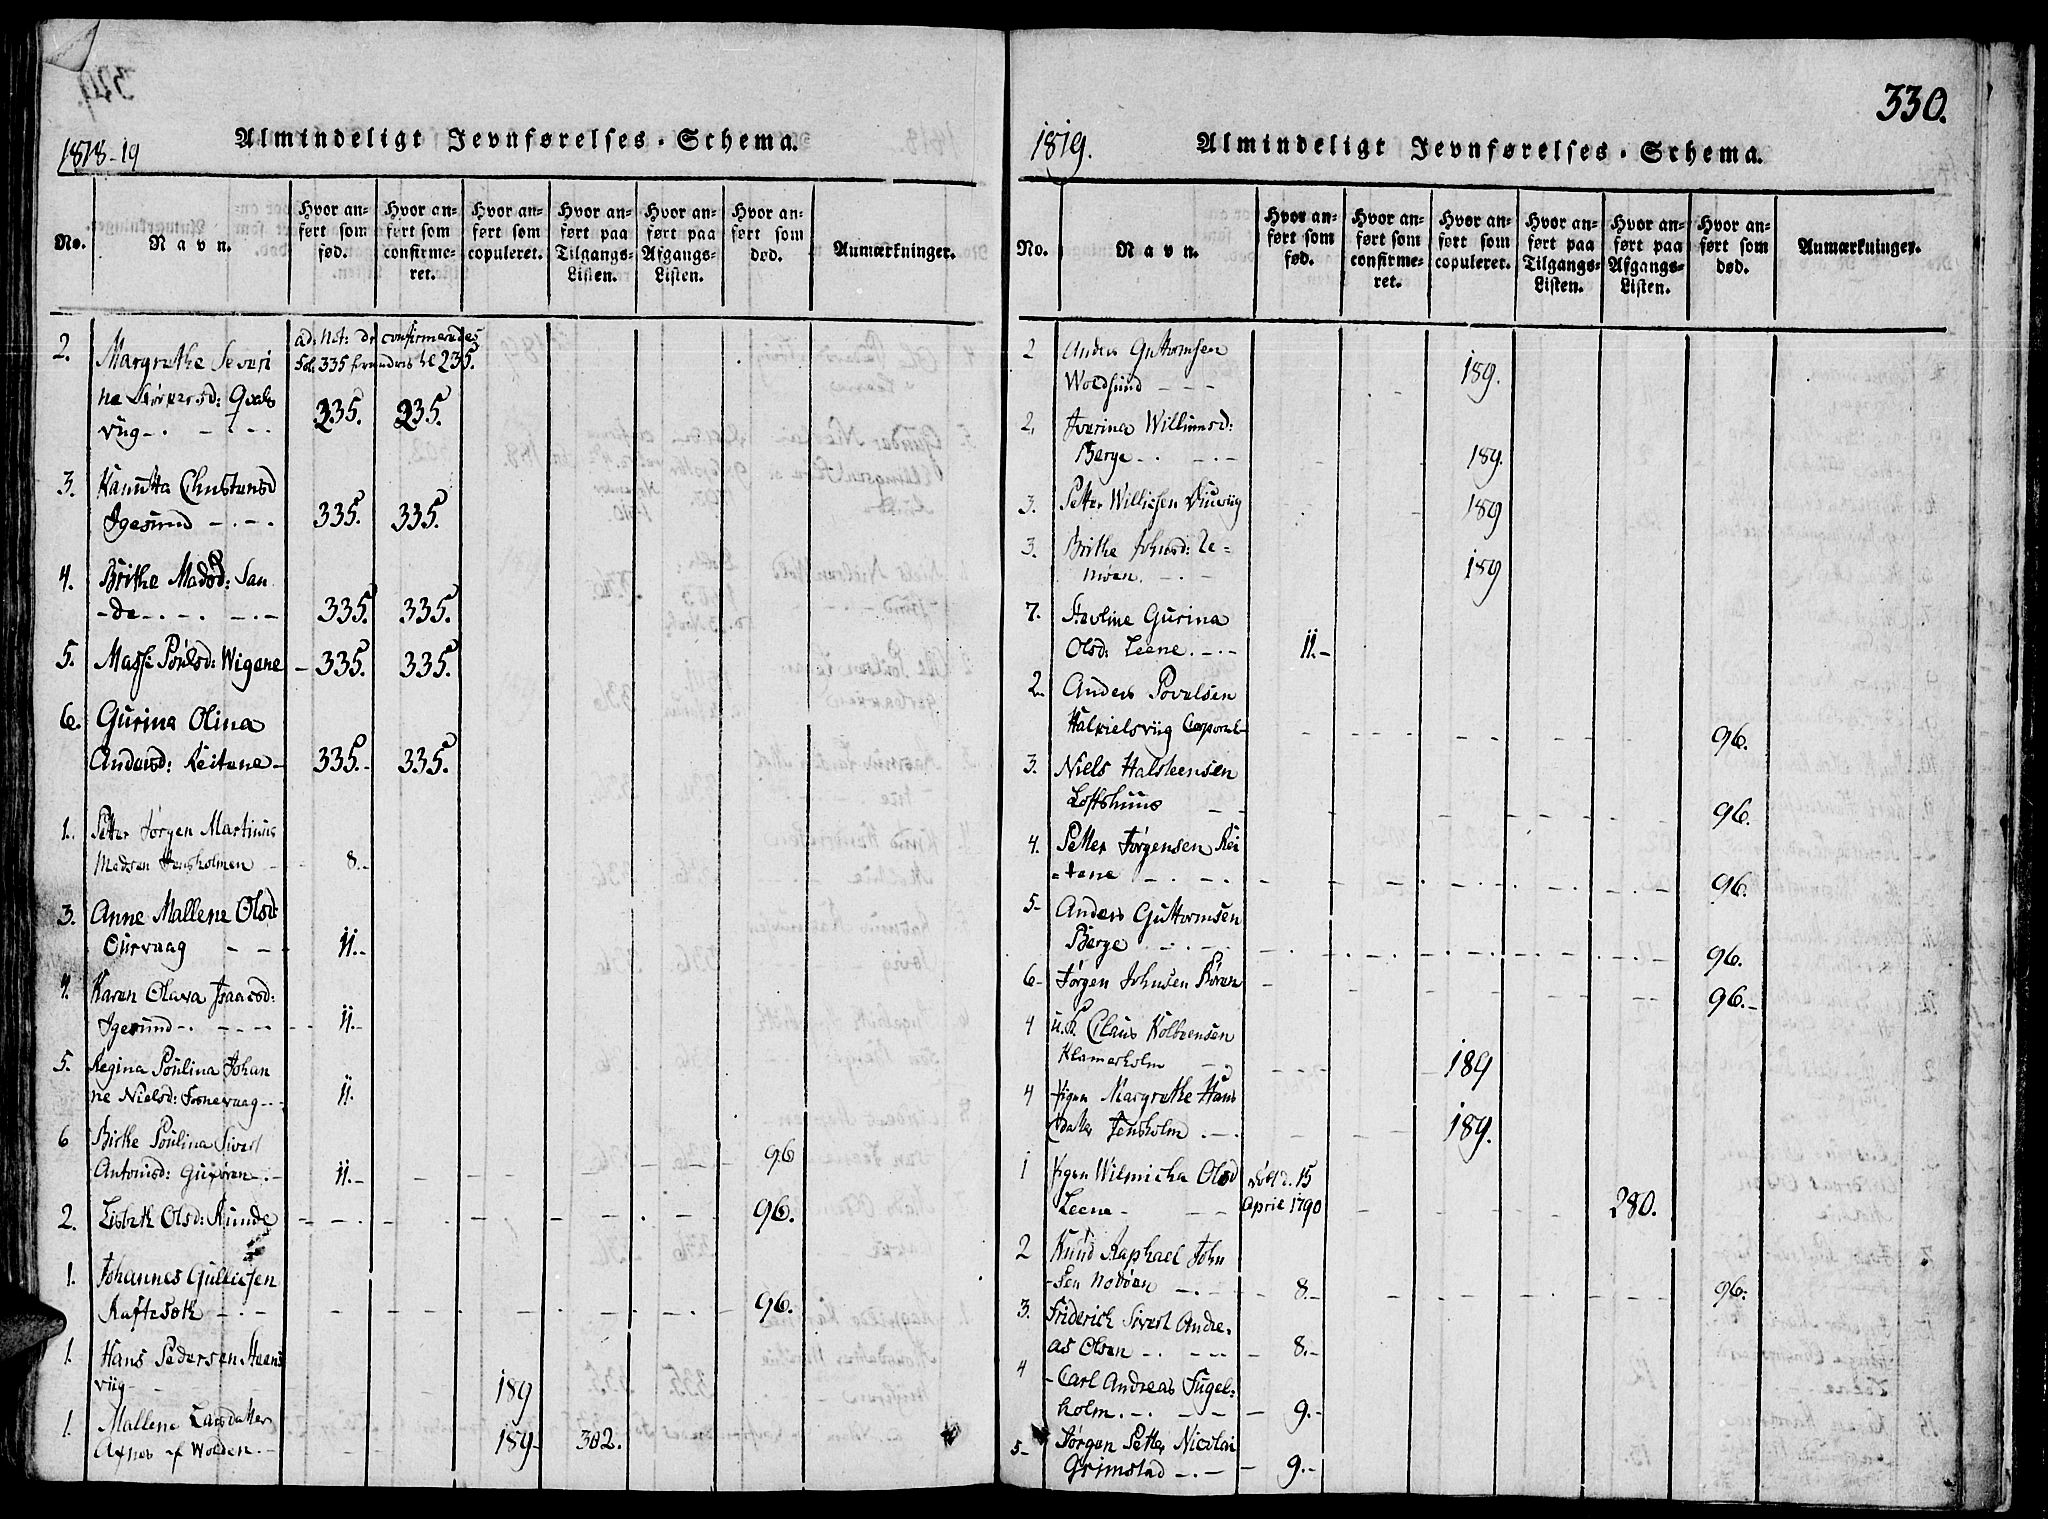 1818-19
Almindeligt Jevnførelses-Schema.
No.
Navn.
Hvor anført som fød.
Hvor anført som confirmeret.
Hvor anført som copuleret.
Hvor anført paa Tilgangs-Listen.
Hvor anført paa Afgangs-Listen.
Hvor anført som død.
Anmærkninger.
2. Margrethe Severi
ad. Not: de confirmerdes
Fol. 335 235.
ne
viig 335. 235.
3. Kanutta Christensd
Igesund 335. 335.
4. Birthe Madsd: San
-de 335. 335.
5. Mass: Povlsd: Wigene 335. 335.
6. Gurina Olina
Andersd: Reitene 335. 335.
1. Petter Jørgen Martinus
Madsen Jensholmen 8.
3. Anne Mallene Olsd:
Cuvaag 11.
4. Karen Olava Isaacsd:
Igesund 11.
5. Regina Poulina Johan
ne Nielsd: Fosnevaag 11.
6 Birthe Poulina Sivert
Antonisd: 11. 96
2. Lisbeth Olsd: Kunde 96.
1. Johannes Gullicksen
Raftesæth 96.
1. Hans Pedersen
viig 189
1. Mallene Larsdatter
Axnes af Wolden 189 302.
330.
1819.
Almindeligt Jevnførelses-Schema.
No.
Navn.
Hvor anført som fød.
Hvor anført som confirmeret.
Hvor anført som copuleret.
Hvor anført paa Tilgangs-Listen.
Hvor anført paa Afgangs-Listen.
Hvor anført som død.
Anmærkninger.
2 Anders Guttormsen
Woldsund 189.
2. Iverina Williumsd:
Berge 189.
3. Petter Williesen 189
3. Birthe Johnsd: Le-
møen. 189
7. Hevline Gurina
Olsd: Leene 11.
2. Anders Povelsen
Halkielsviig Corporal 96.
3. Niels Halsteensen
Loftshuus 96.
4. Petter Jørgensen Rei
=tene 96.
5 Anders Guttormsen
Berge 96.
6 Jørgen Johnsen Røren 96.
4 u.k. Claus Kolbeensen
Klamerholm 189
4 Pigen Margrethe Hans
Datter Jensholm 189.
1 Pigen Wilmicha Olsd
Leene døbt d. 15
April 1790 280.
2 Knud Raphael John
-sen 8. 96.
3. Friderich Sivert Andre-
as Olsen 8.
4 Carl Andreas Fugel-
holm. 9.
5 Jørgen Petter Nicolai
Grimstad 9.